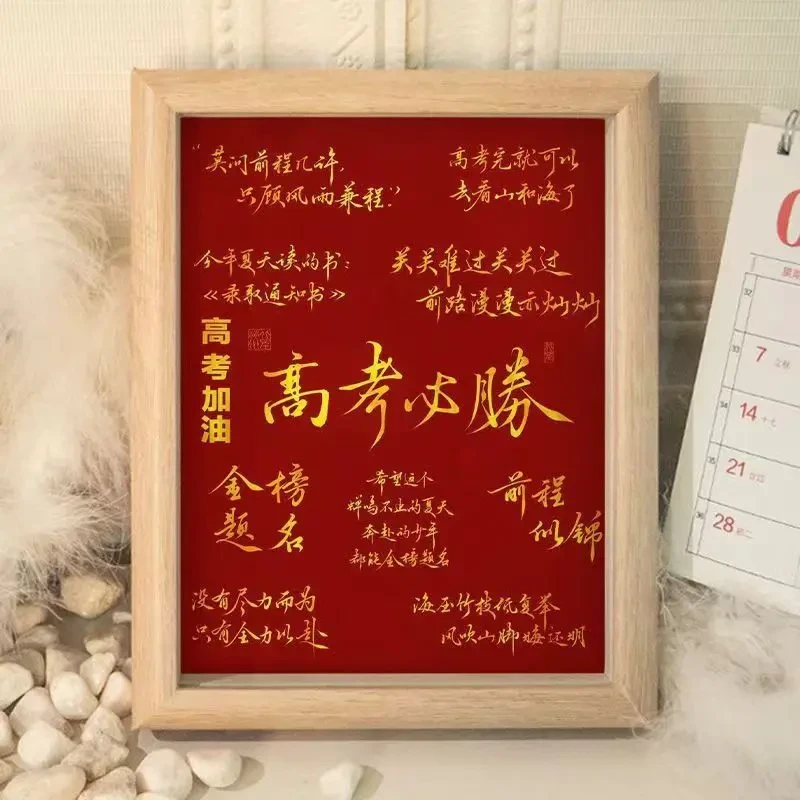 “莫问前程几许,
只顾风雨兼程.”
高考完就可以
去看山和海了
今年夏天读的书:
《录取通知书》
关关难过关关过
前路漫漫亦灿灿
高考加油
高考必勝
金榜
题名
希望这个
蝉鸣不止的夏天
奔赴的少年
都能金榜题名
前程
似锦
没有尽力而为
只有全力以赴
海压竹枝低复举
风吹山脚晦还明
32
33
7
14
十七
35
21
廿四
36
28
初二